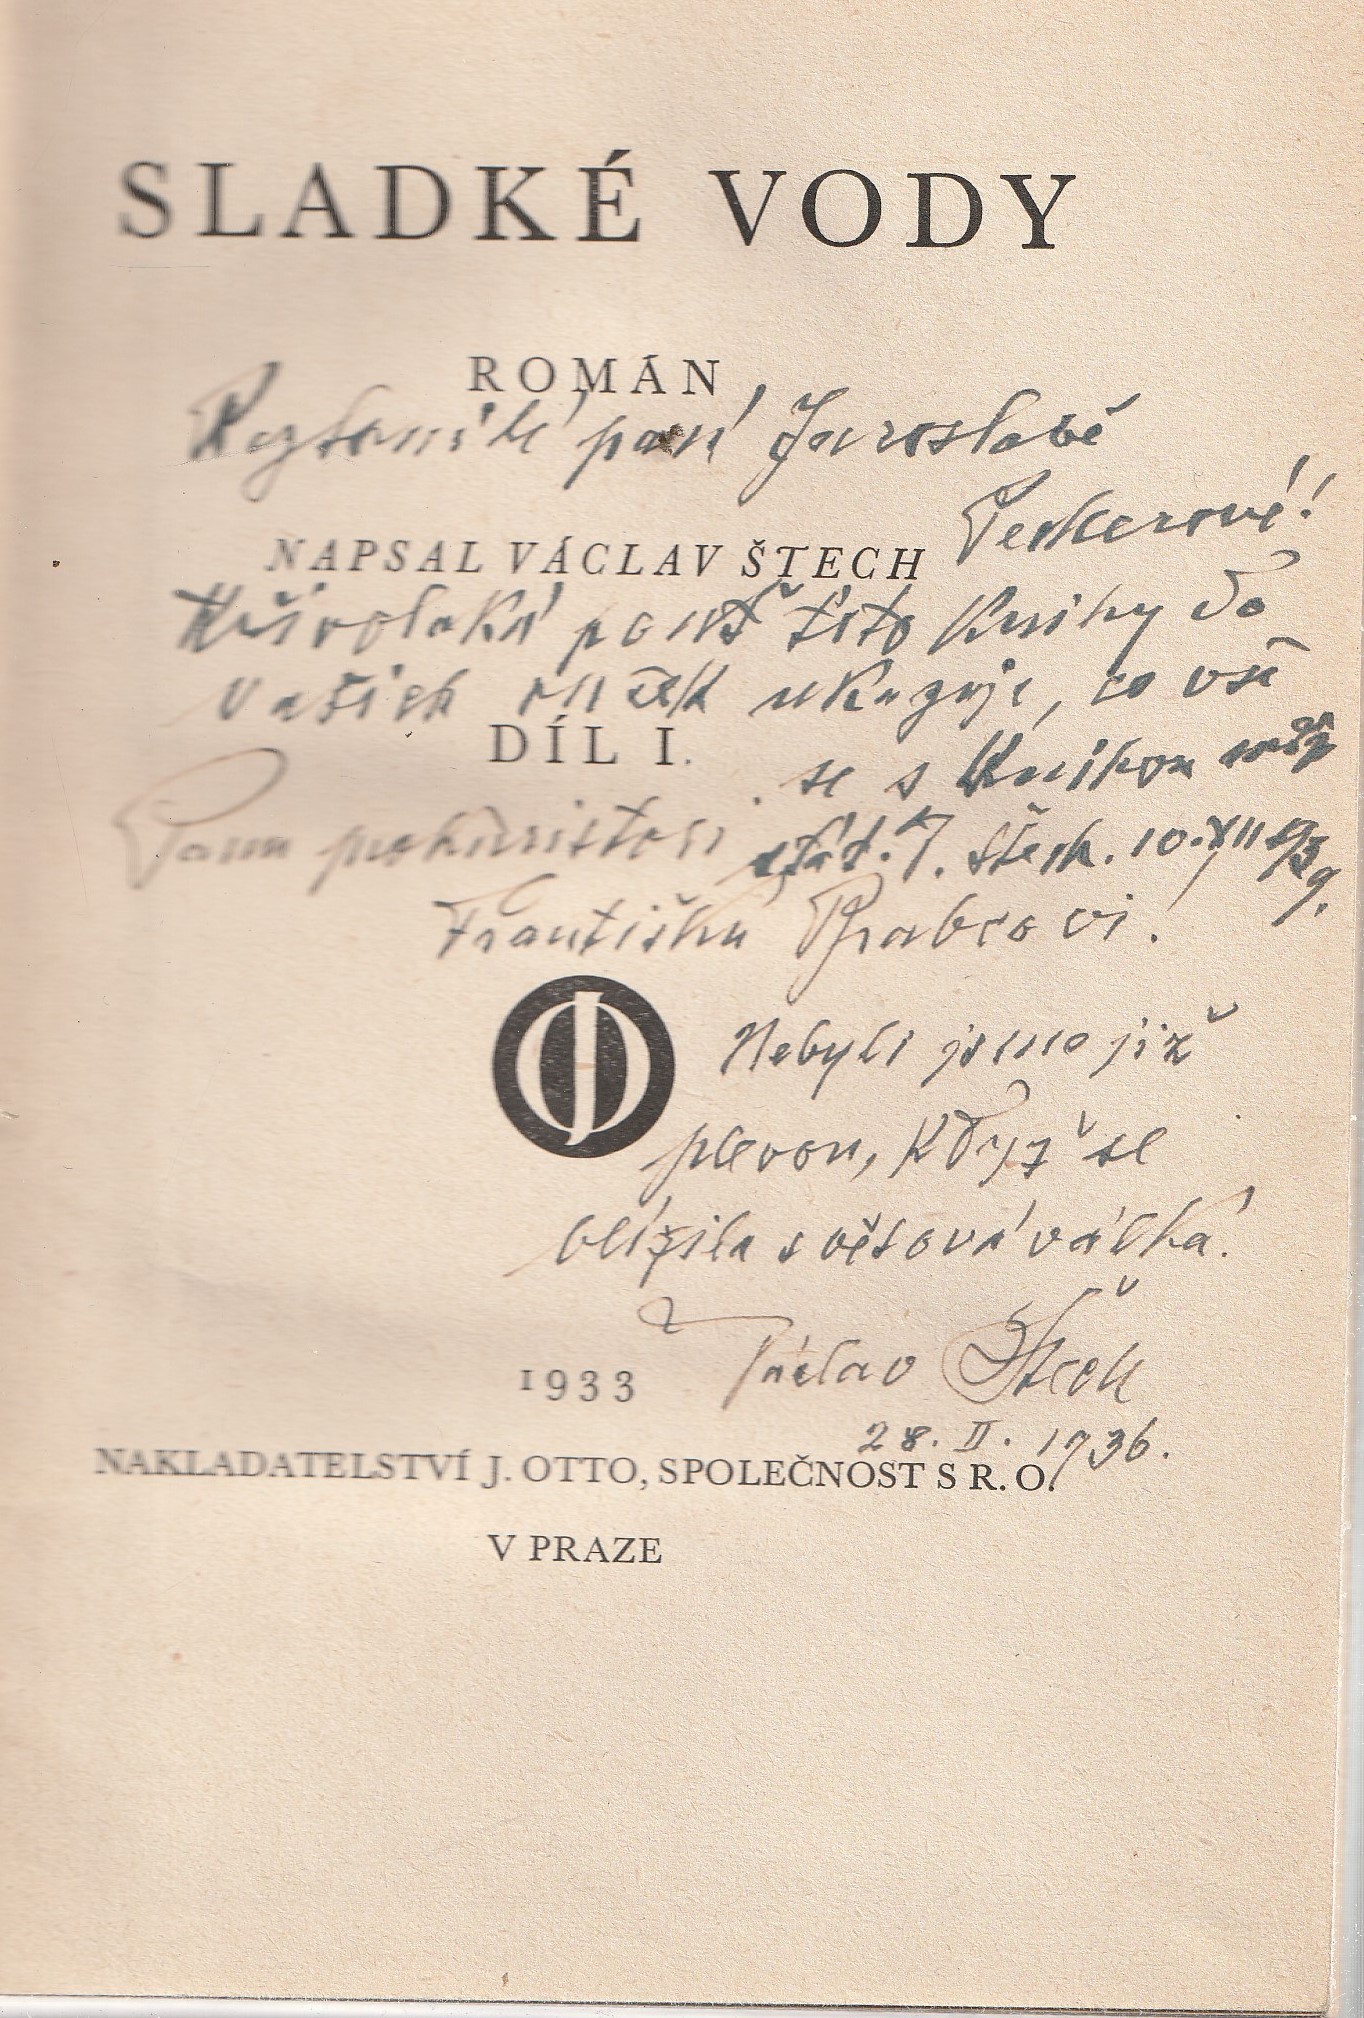 SLADKÉ VODY
ROMÁN
Roztomilé paní Jaroslavě
Peckerové!
NAPSAL VÁCLAV ŠTECH
Křivolaká pouť této knihy do
Vašich ruček ukazuje, co vše
DÍL I.
se s knihou může
Panu
stát. V. Štech. 10. XII 1939.
Františku Vrabcovi!
Nebyli jsme již
plevou, když se
blížila světová válka!
1933
Václav Štech
28. II. 1936.
NAKLADATELSTVÍ J. OTTO, SPOLEČNOST S R. O.
V PRAZE